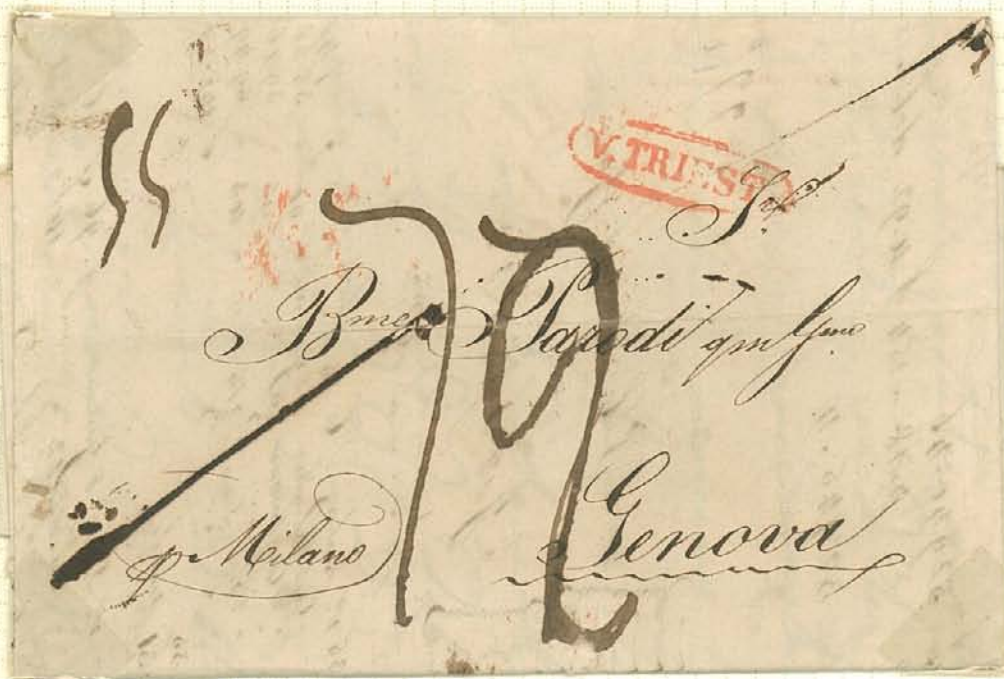 V. TRIEST
55
Sigr
Bmeo Parodi qm Gmo
p Milano
Genova